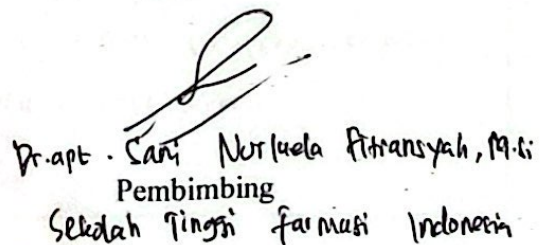 Dr. apt. Sani Nurlaela Fitriansyah, M.Si
Pembimbing
Sekolah Tinggi Farmasi Indonesia